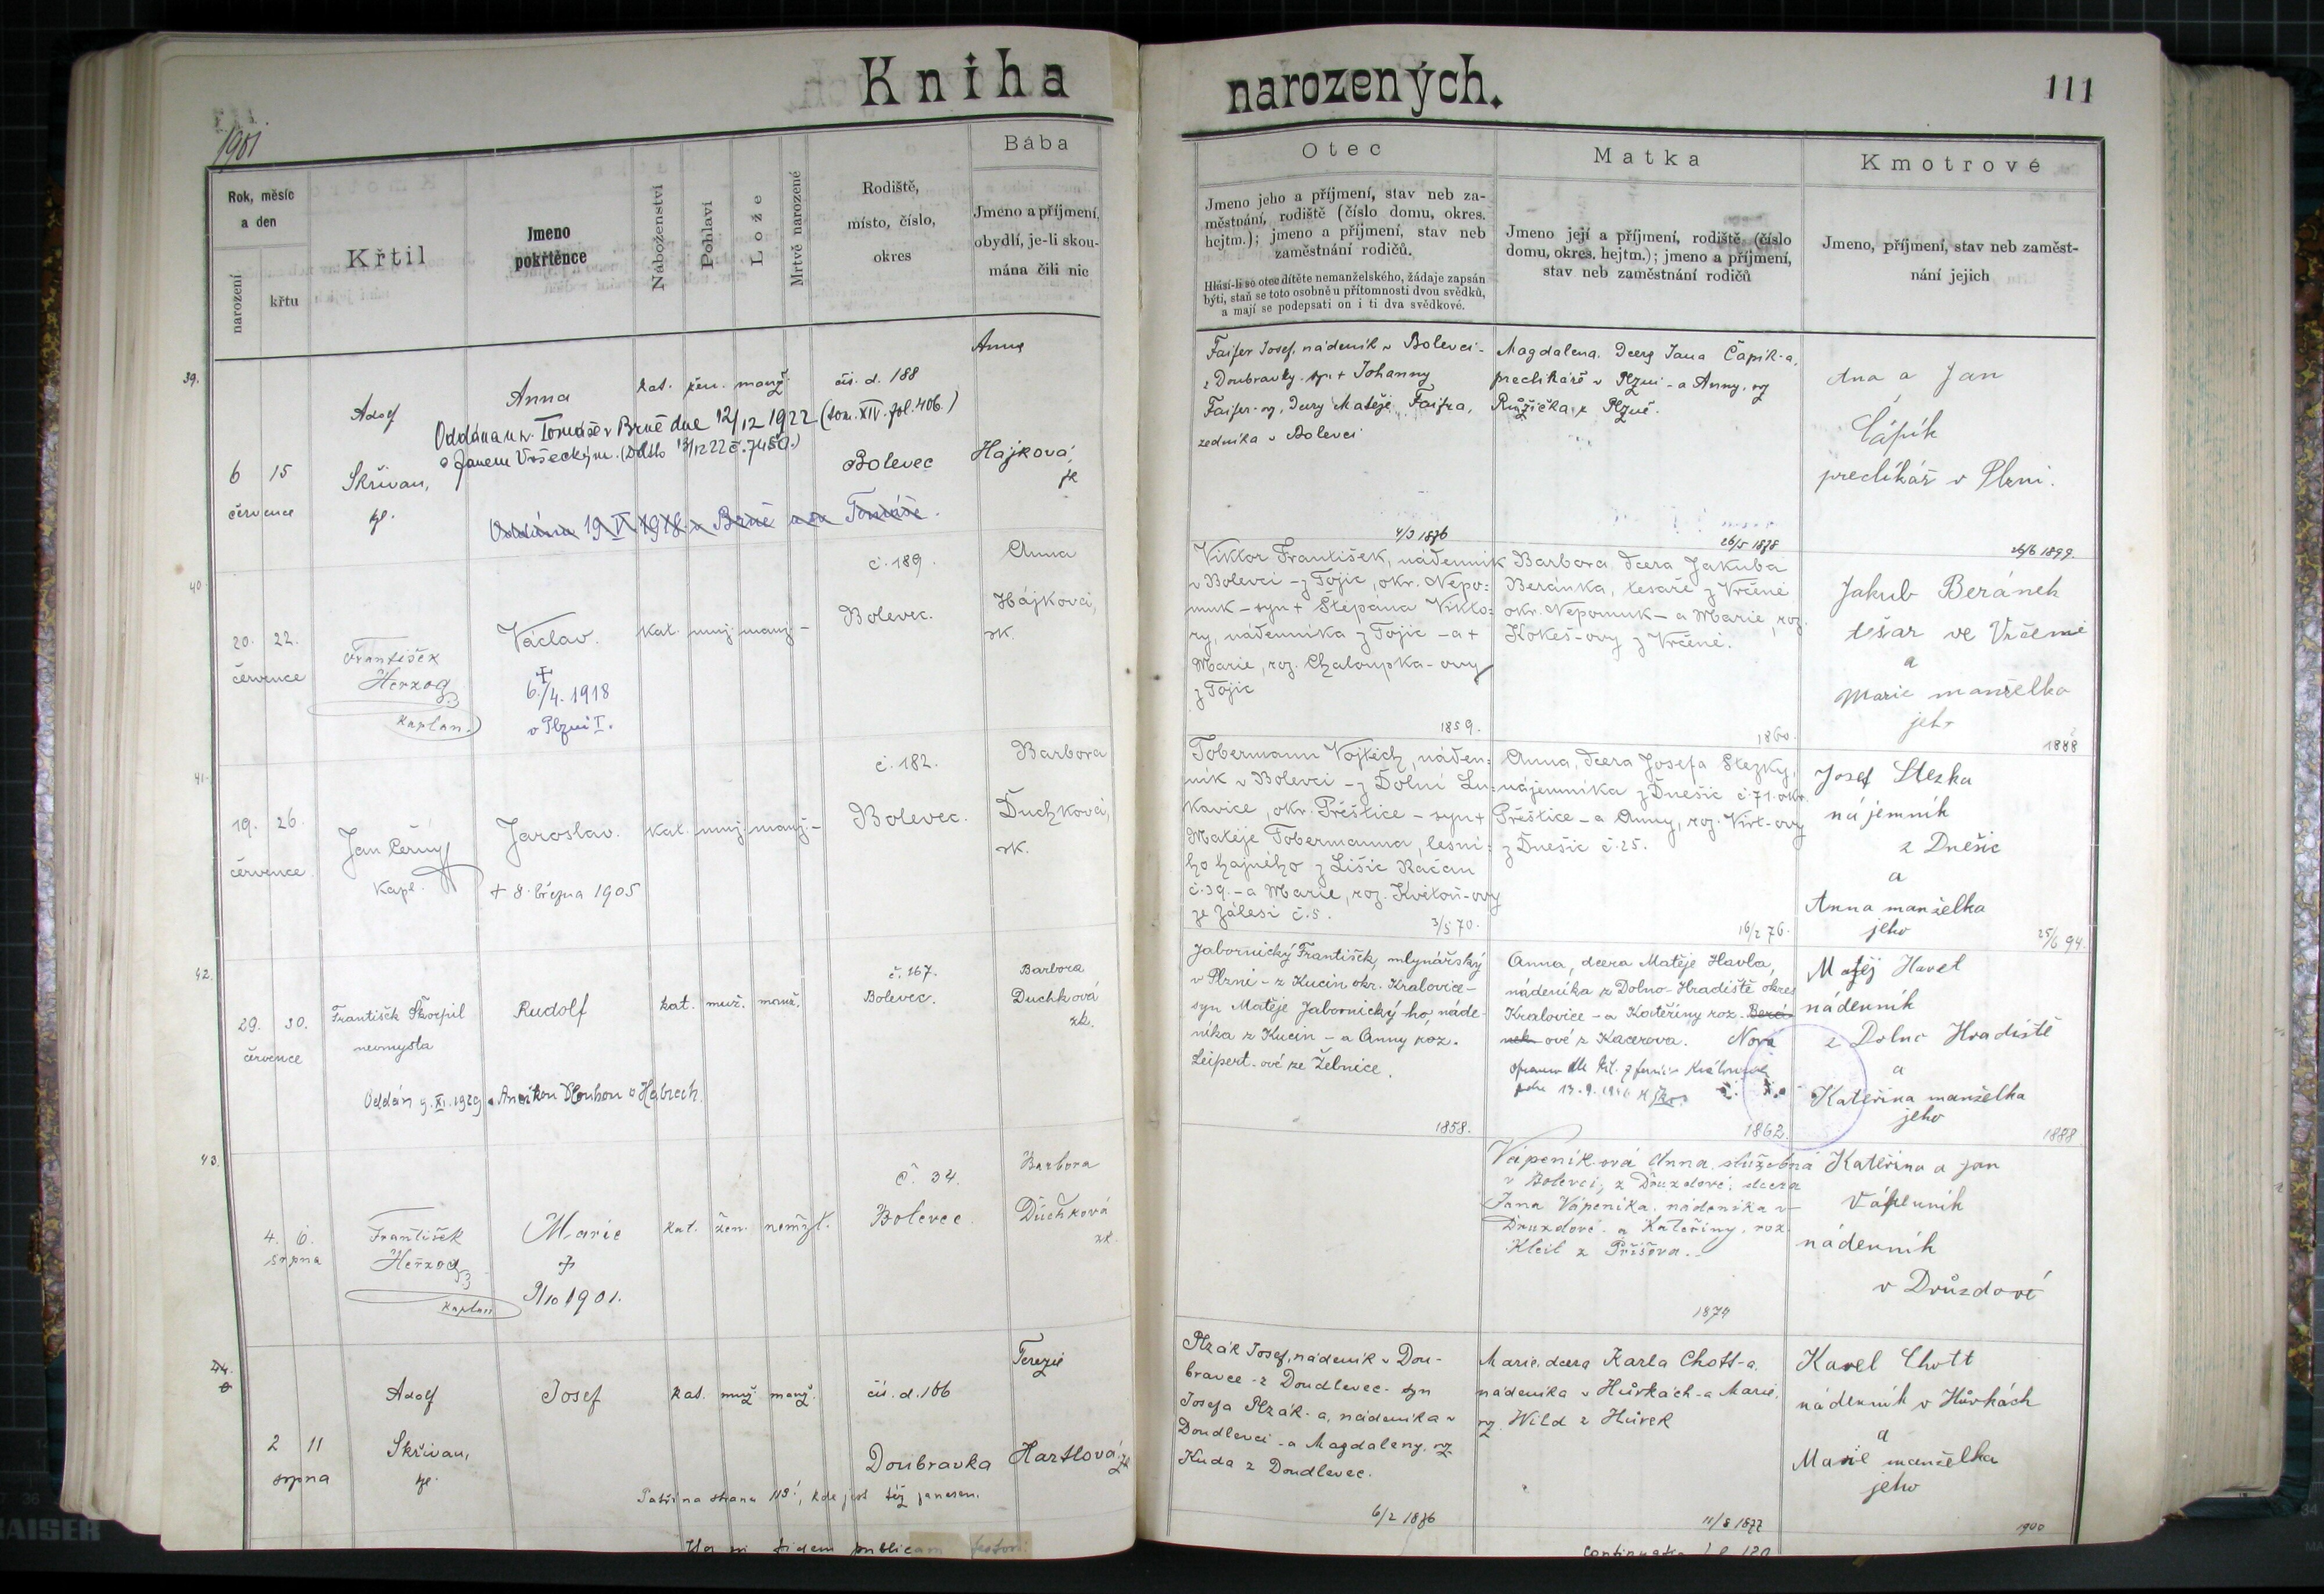 Kniha narozených.
111
1901
Rok, měsíc
a den
narození
křtu
Křtil
Jmeno
pokřtěnce
Náboženství
Pohlaví
Lože
Mrtvě narozené
Rodiště,
místo, číslo,
okres
Bába
Jmeno a příjmení,
obydlí, je-li skou-
mána čili nic
Otec
Jmeno jeho a příjmení, stav neb za-
městnání, rodiště (číslo domu, okres.
hejtm.); jmeno a příjmení, stav neb
zaměstnání rodičů.
Hlásí-li se otec dítěte nemanželského, žádaje zapsán
býti, staň se toto osobně u přítomnosti dvou svědků,
a mají se podepsati on i ti dva svědkové.
Matka
Jmeno její a příjmení, rodiště (číslo
domu, okres. hejtm.); jmeno a příjmení,
stav neb zaměstnání rodičů
Kmotrové
Jmeno, příjmení, stav neb zaměst-
nání jejich
39.
6 15
července
Adolf
Skřivan,
kpl.
Anna
Oddána u sv. Tomáše v Brně dne 12/12 1922 (tom. XIV. fol. 406.)
s Janem Vršeckým.
Oddána 19 Brně Tomáše.
kat. žen. manž.
čís. d. 188
Bolevec
Anna
Hájková,
zk
Faifer Josef, nádeník v Bolevci-
z Doubravky. syn + Johanny
Faifer. roz. dcery Matěje Faifra,
zedníka v Bolevci
4/3 1876
Magdalena, dcera Jana Čapík-a,
preclíkáře v Plzni - a Anny, roz
Růžička z Plzně.
26/5 1878
Ana a Jan
Čápík
preclíkář v Plzni.
26/6 1899.
40.
20. 22.
července
František
Herzog
kaplan.
Václav.
+
6./4. 1918
v Plzni I.
kat. muž. manž. -
č. 189.
Bolevec.
Anna
Hájková,
zk.
Viktor František, nádenník
v Bolevci - z Tojic, okr. Nepo=
muk - syn + Štěpána Vikto=
ry, nádenníka z Tojic - a +
Marie, roz. Chaloupka-ovy
z Tojic
1859.
Barbora, dcera Jakuba
Beránka, tesaře z Vrčeně
okr. Nepomuk - a Marie, roz.
Kokeš-ovy z Vrčeně.
1860.
Jakub Beránek
tešar ve Vrčeni
a
Marie manželka
jeho
1888
41.
19. 26.
července.
Jan Černý
kapl.
Jaroslav.
+ 8. března 1905
kat. muž. manž. -
č. 182.
Bolevec.
Barbora
Duchková,
zk.
Tobermann Vojtěch, náden=
ník v Bolevci - z Dolní Lu=
kavice, okr. Přeštice - syn +
Matěje Tobermanna, lesní=
ho hajného z Lišic Račan
č. 39. - a Marie, roz. Květoň-ovy
ze Zálesí č. 5.
3/5 70.
Anna, dcera Josefa Stezky,
nájemníka z Dnešic č. 71. okr.
Přeštice - a Anny, roz. Virt-ovy
z Dnešic č. 25.
16/2 76.
Josef Stezka
nájemník
z Dnešic
a
Anna manželka
jeho
25/6 94.
42.
29. 30.
července
František Škorpil
Rudolf
Oddán 9. XI. 1929 s Anežkou Dlouhou v Habrech.
kat. muž. manž.
č. 167.
Bolevec.
Barbora
Duchková
zk.
Jabornický František, mlynářský
v Plzni - z Kucin okr. Kralovice -
syn Matěje Jabornický ho, náde-
níka z Kucin - a Anny roz.
Leipert-ové ze Želnice.
1858.
Anna, dcera Matěje Havla,
nádeníka z Dolno-Hradiště okres
Kralovice - a Kateřiny roz. Berá-
nek-ové z Kacerova. Nová
1862.
Matěj Havel
nádenník
z Dolno Hradiště
a
Kateřina manželka
jeho
1888
43.
4. 6.
srpna
František
Herzog
kaplan
Marie
+
9/10 1901.
kat. žen. nemž.
č. 34.
Bolevec.
Barbora
Duchková
zk.
Vápeník-ová Anna, služebná
v Bolevci, z Druzdové. dcera
Jana Vápeníka, nádeníka v
Druzdové - a Kateřiny, roz.
Kleil z Příšova. -
1874
Kateřina a Jan
Vápenník
nádenník
v Drůzdové
44.
2 11
srpna
Adolf
Skřivan,
kpl.
Josef
kat. muž manž.
čís. d. 106
Doubravka
Terezie
Hartlová, zk
Patří na stranu 113, kde jest též zanesen.
Plzák Josef, nádeník v Dou-
bravce - z Doudlevec - syn
Josefa Plzák-a, nádeníka v
Doudlevci - a Magdaleny, roz
Kuda z Doudlevec.
6/2 1876
Marie, dcera Karla Chott-a
nádeníka v Hůrkách - a Marie,
roz. Wild z Hůrek
11/8 1877
Karel Chott
nádenník v Hůrkách
a
Marie manželka
jeho
1900
fidem publicam